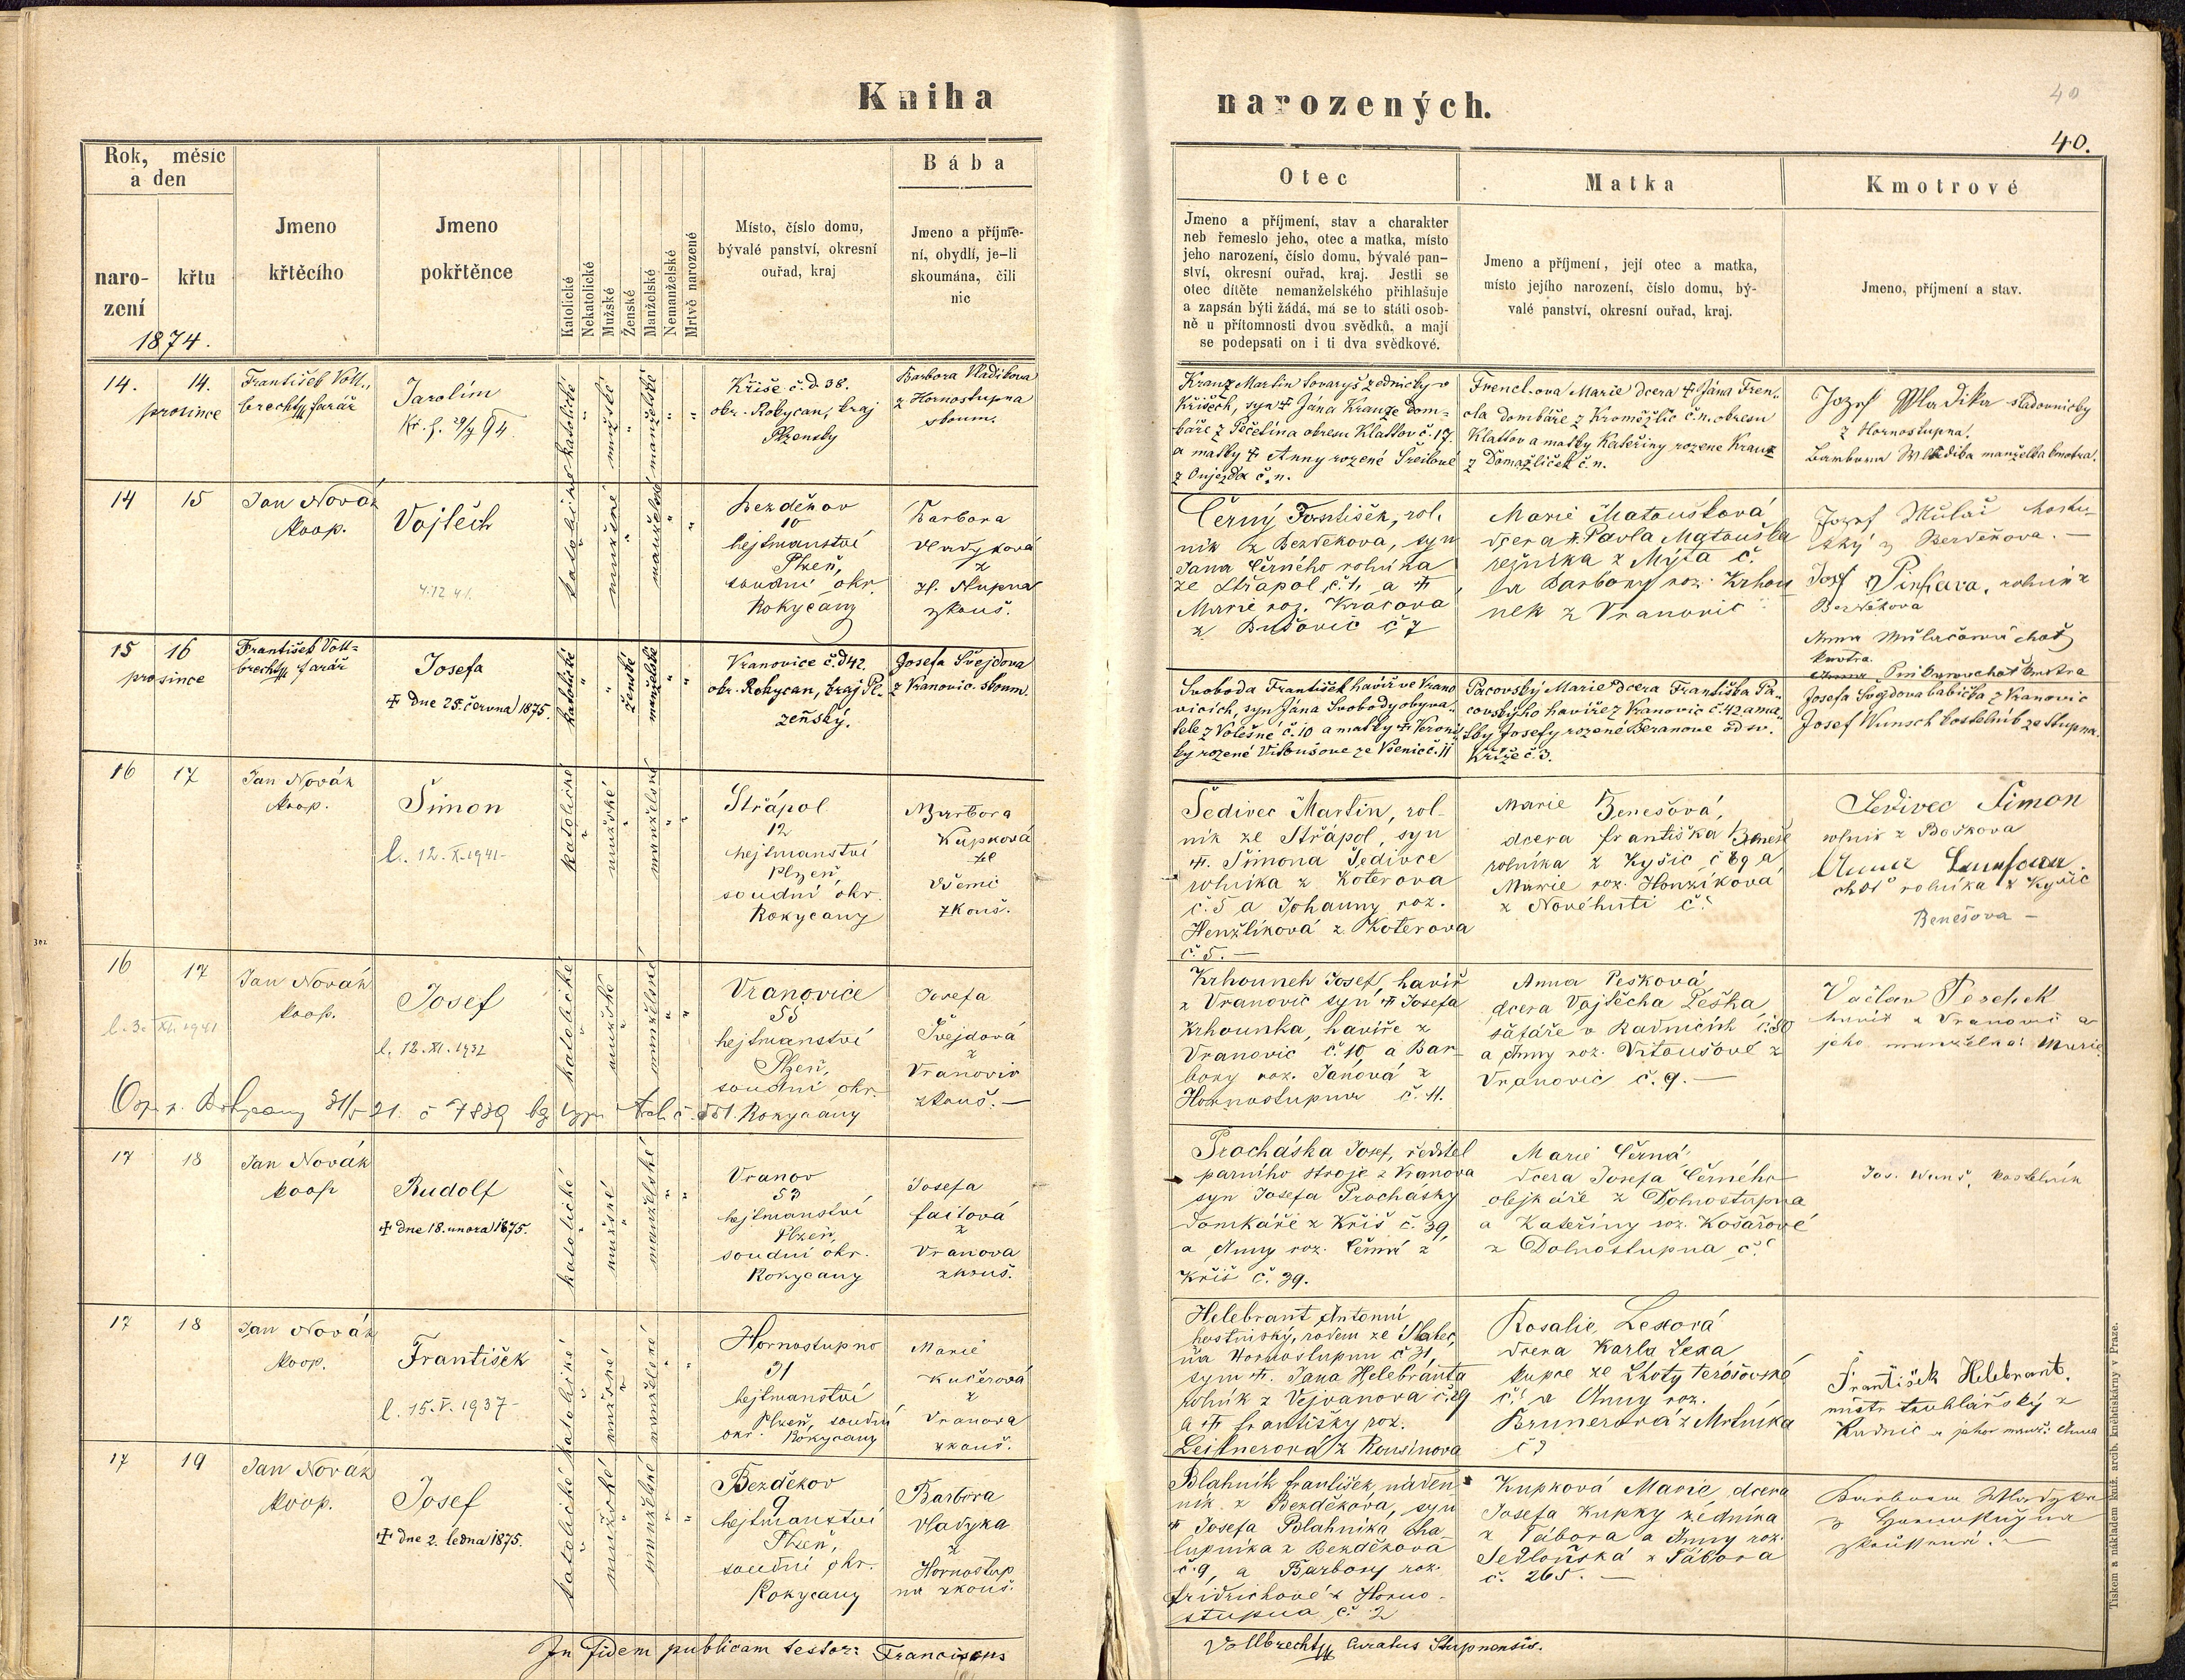 Kniha
narozených.
40
40.
Rok, měsíc
a den
naro-
zení
křtu
1874.
Jmeno
křtěcího
Jmeno
pokřtěnce
Katolické
Nekatolické
Mužské
Ženské
Manželské
Nemanželské
Mrtvě narozené
Místo, číslo domu,
bývalé panství, okresní
ouřad, kraj
Bába
Jmeno a příjme-
ní, obydlí, je-li
skoumána, čili
nic
Otec
Jmeno a příjmení, stav a charakter
neb řemeslo jeho, otec a matka, místo
jeho narození, číslo domu, bývalé pan-
ství, okresní ouřad, kraj. Jestli se
otec dítěte nemanželského přihlašuje
a zapsán býti žádá, má se to státi osob-
ně u přítomnosti dvou svědků, a mají
se podepsati on i ti dva svědkové.
Matka
Jmeno a příjmení, její otec a matka,
místo jejího narození, číslo domu, bý-
valé panství, okresní ouřad, kraj.
Kmotrové
Jmeno, příjmení a stav.
14. 14.
prosince
František Voll-
brecht farář
Jarolím
katolické
mužské
manželské
Kříše č.d. 38.
okr. Rokycan, kraj
Plzensky
Barbora Vladikova
z Hornostupna
skoum.
Kranz Martin tovaryš zednicky v
Kříšech, syn ☩ Jána Kranze dom-
káře z Točelína okresu Klattov č. 17.
a matky ☩ Anny rozené Šreilové
z Oujezda č. n.
Frencl-ova Marie dcera ☩ Jána Fren-
cla domkáře z Kroměždic č.n. okresu
Klattov a matky Kateřiny rozene Kranz
z Domažliček č. n.
Jozef Wladika sladovnicky
z Hornostupna.
Barbora Wladika manželka kmotra.
14 15
Jan Novák
koop.
Vojtěch
4.12.41.
katolické
mužské
manželské
Bezděkov
10
hejtmanství
Plzeň,
soudní okr.
Rokycany
Barbora
Vladyková
z
H. Stupna
zkouš.
Černý František, rol-
ník z Bezdekova, syn
Jana Černého rolníka
ze Střapol č. 1, a ☩
Marie roz. Kracova
z Bušovic č 7
Marie Matoušková
dcera ☩ Pavla Matouška
řezníka z Mýta č.
a Barbory roz. Krhou
nek z Vranovic
Jozef Mulač hostin-
ský z Berděkova. —
Josef Pinkava, rolník z
Berděkova
Anna Mulačová choť
kmotra.
Anna Pinkavova choť kmotra
15 16
prosince
František Voll-
brecht farář
Josefa
☩ dne 25. června 1875.
katolické
ženské
manželské
Vranovice č.d 42.
okr. Rokycan, kraj Pl-
zeňský.
Josefa Švejdova
z Vranovic. skoum.
Svoboda František havíř ve Vrano
vicích, syn Jána Svobody obyva-
tele z Volešné č. 10 a matky ☩ Veroni
ky rozené Vitoušove ze Vsenic č. 11
Pacovský Marie dcera Františka Pa-
covskýho havíře z Vranovic č. 42 a ma-
tky Josefy rozené Beranove od sv.
Kříže č 3.
Josefa Švejdova babička z Vranovic
Josef Wunsch kostelník ze Stupna.
16 17
Jan Novák
koop.
Šimon
l. 12. X. 1941-
katolické
mužské
manželské
Střápol
12
hejtmanství
Plzeň
soudní okr.
Rokycany
Barbora
Kupková
ze
Všenic
zkouš.
Šedivec Martin, rol-
ník ze Střápol, syn
☩. Šimona Šedivce
rolníka z Koterova
č. 5 a Johanny roz.
Henžlíková z Koterova
č. 5. —
Marie Benešová,
dcera františka Beneše
rolníka z Kyšic č 89 a
Marie roz. Honzíková
z Novéhuti č.
Šedivec Šimon
rolník z Božkova
Anna
choť rolníka z Kyšic
Benešova —
16 17
l. 3. XI. 1941
Jan Novák
koop.
Josef
l. 12. XI. 1932
katolické
mužské
manželské
Vranovice
55
hejtmanství
Plzeň,
soudní okr.
Rokycany
Josefa
Švejdová
z
Vranovic
zkouš. —
Krhounek Josef, havíř
z Vranovic syn ☩ Josefa
Krhounka, havíře z
Vranovic č. 10 a Bar-
bory roz. Janová z
Hornostupna č. 11.
Anna Pešková
dcera Vojtěcha Peška
šafáře v Radnicích č. 50
a Anny roz. Vitoušové z
Vranovic č. 9. —
Václav Peschek
havíř z Vranovic a
jeho manželka: Marie
17 18
Jan Novák
koop
Rudolf
☩ dne 18. unora 1875.
katolické
mužské
manželské
Vranov
53
hejtmanství
Plzeň,
soudní okr.
Rokycany
Josefa
faitová
z
Vranova
zkouš.
Procháska Josef, ředitel
parního stroje z Vranova
syn Josefa Procházky
domkáře z Kříš č. 39,
a Anny roz. Černá z
Kříš č. 39.
Marie Černá
dcera Josefa Černého
obejkáře z Dolnostupna
a Kateřiny roz. Košařové
z Dolnostupna č.
Jos. Wunš, kostelník
17 18
Jan Novák
koop.
František
l. 15. V. 1937-
katolické
mužské
manželské
Hornostupno
31
hejtmanství
Plzeň, soudní
okr. Rokycany
Marie
Kučerová
z
Vranova
zkouš.
Helebrant Antonín
hostinský, rodem ze
na Hornostupnu č 31,
syn ☩. Jana Helebranta
rolník z Vejvanova č. 29
a ☩ františky roz.
Leitnerová z Rousinova
Rosalie Lexová
dcera Karla Lexa
kupce ze Lhoty Terešovské
č. a Anny roz.
Brunerová z Mrtníka
č ?
František Helebrant,
mistr truhlářský z
Radnic a jeho manž: Anna
17 19
Jan Novák
koop.
Josef
☩ dne 2. ledna 1875.
katolické
mužské
manželské
Bezděkov
9
hejtmanství
Plzeň,
soudní okr.
Rokycany
Barbora
Vladyka
z
Hornostup
na zkouš.
Blahník františek, náden
ník z Bezděkova, syn
☩ Josefa Blahníka cha-
lupníka z Bezděkova
č. 9, a Barbory roz.
fridrichové z Horno-
stupna č. 2
Kupková Marie, dcera
Josefa Kupky zedníka
z Tábora a Anny roz.
Sedloňská z Tábora
č. 265. —
Barbora Wladyka
z Hornostupna
zkoušená. —
In fidem publicam testor: Franciscus
Vollbrecht Curatus Stupnensis.
Tiskem a nákladem kníž. arcib. knehtiskárny v Praze.
302